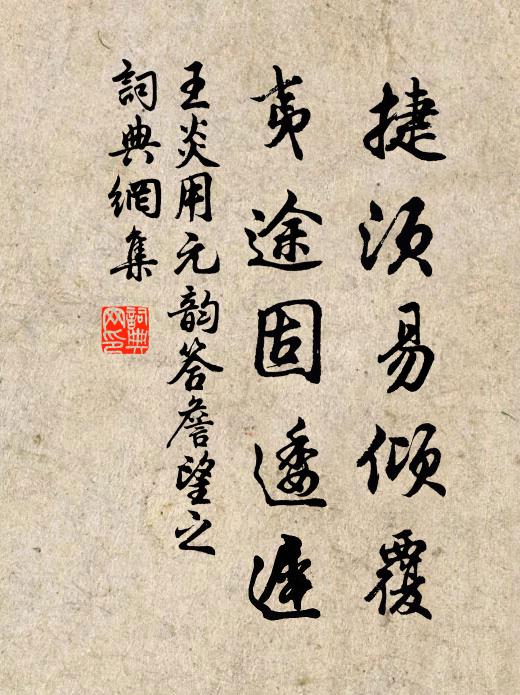 捷須易傾覆
夷途固逶遲
王炎用元韵答詹望之
詞典網集
詞典
网印